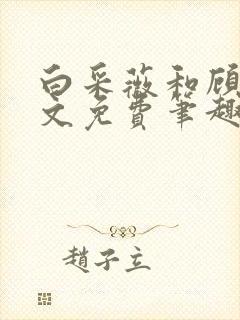 白采薇和顾
文免费笔趣
赵子立